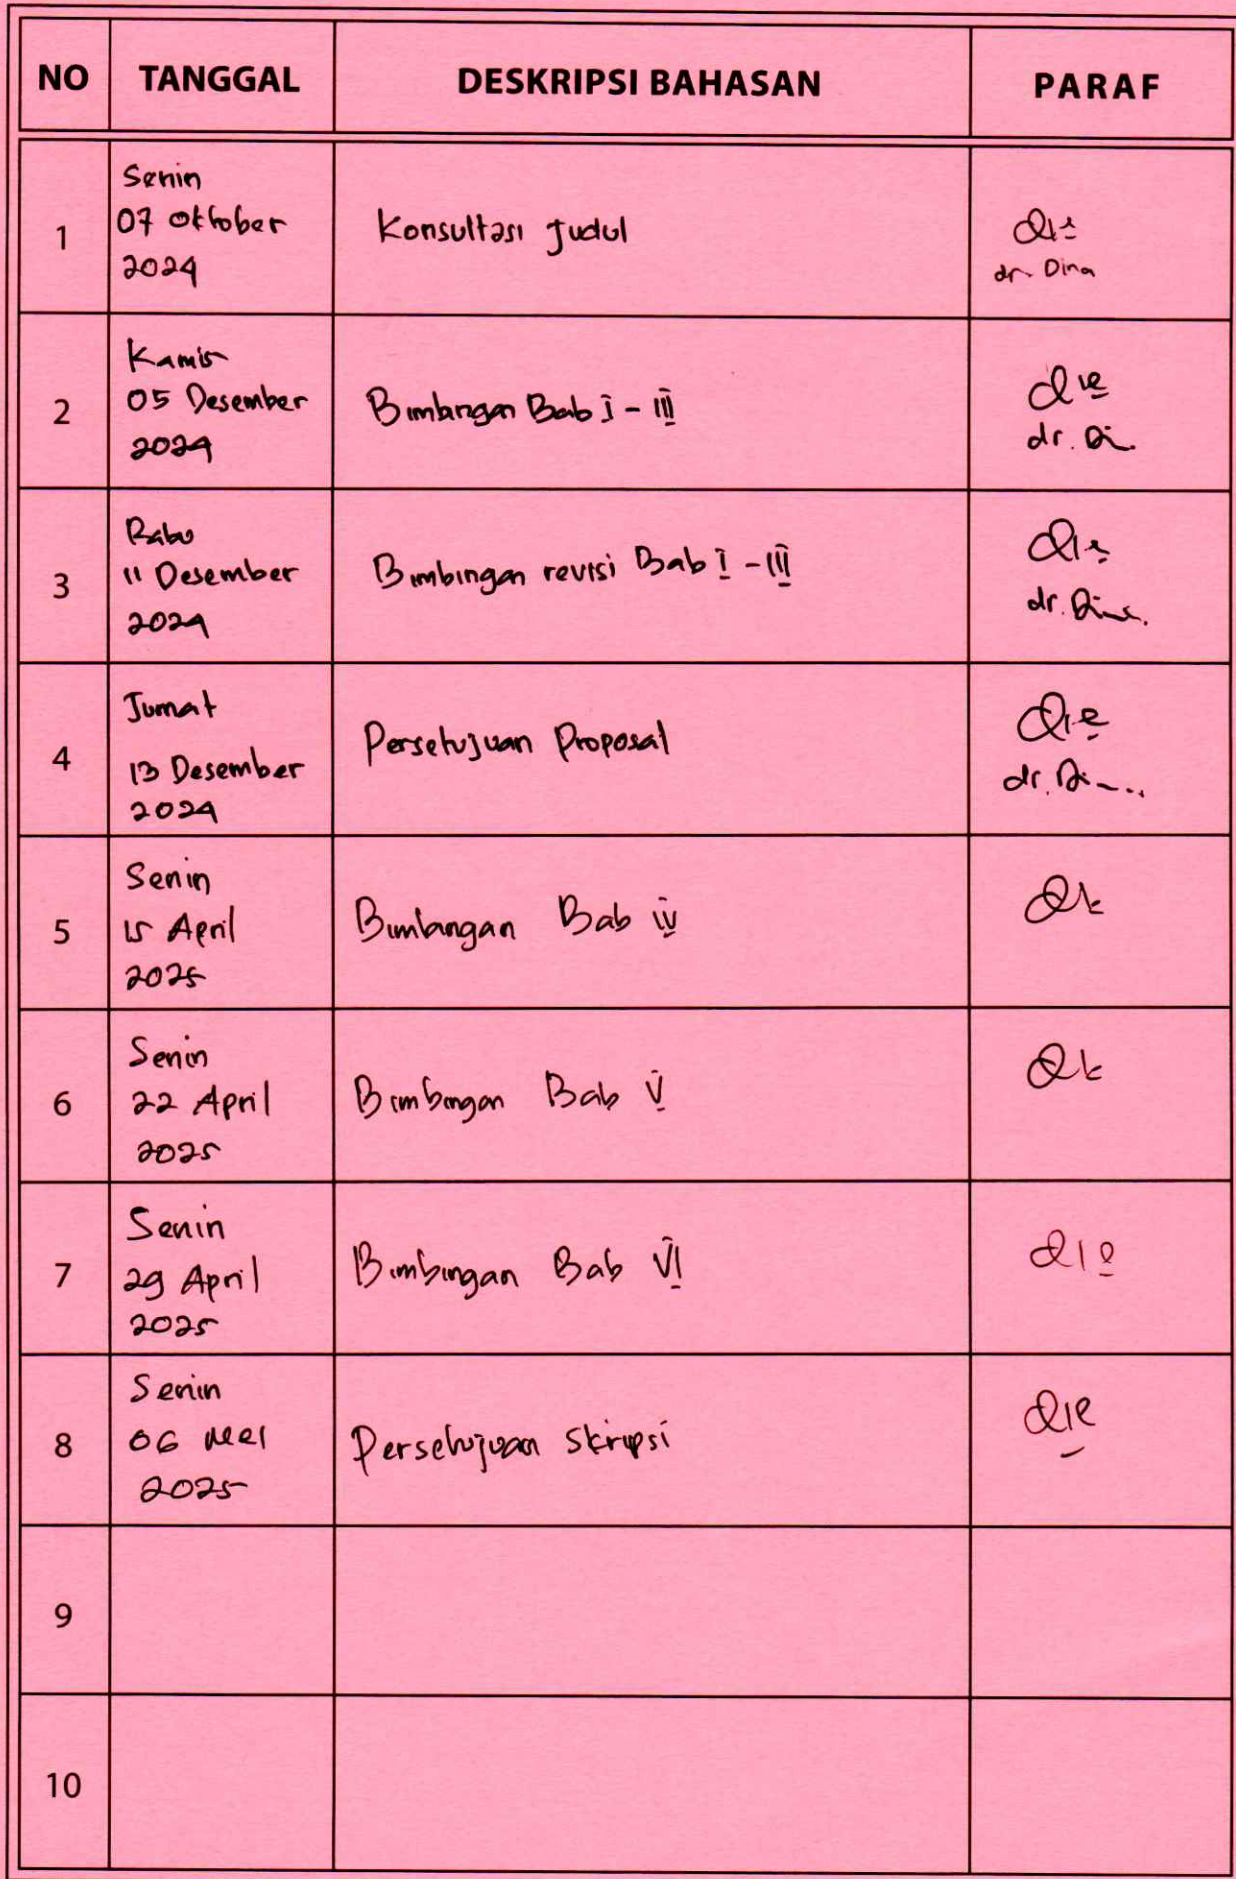 NO TANGGAL DESKRIPSI BAHASAN PARAF
1
Senin
07 Oktober
2024
Konsultasi Judul
dr. Dina
2
Kamis
05 Desember
2024
Bimbingan Bab I - III
dr.
3
Rabu
11 Desember
2024
Bimbingan revisi Bab I - III
dr.
4
Jumat
13 Desember
2024
Persetujuan Proposal
dr.
5
Senin
15 April
2025
Bimbingan Bab IV
6
Senin
22 April
2025
Bimbingan Bab V
7
Senin
29 April
2025
Bimbingan Bab VI
8
Senin
06 Mei
2025
Persetujuan Skripsi
9
10